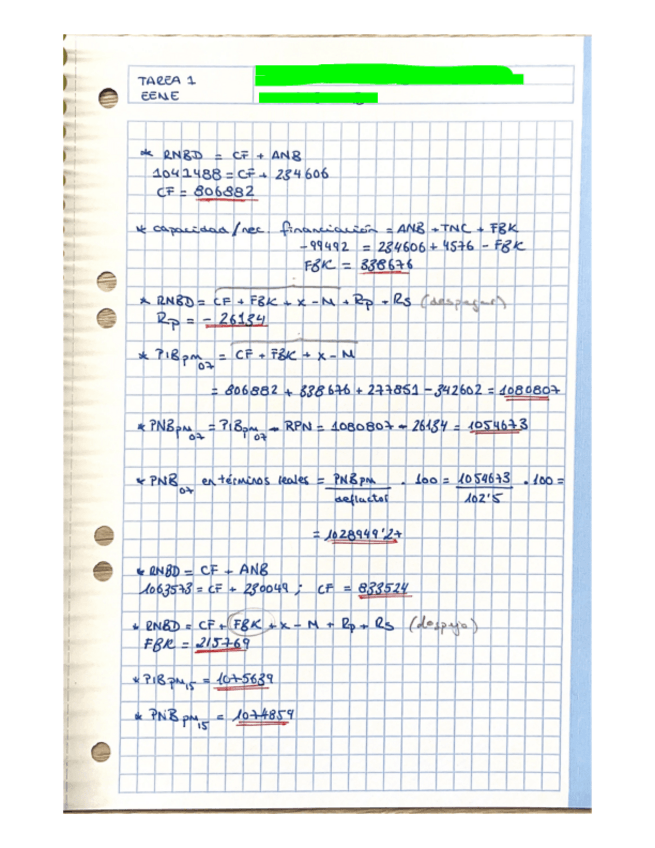 TAREA 1
EENE
* RNBD = CF + ANB
1041488 = CF + 234606
CF = 806882
* Capacidad/nec. financiación = ANB + TNC + FBK
-99492 = 234606 + 4576 - FBK
FBK = 338676
* RNBD = CF + FBK + X - M + Rp + Rs (despejar)
Rp = - 26134
* PIBpm07 = CF + FBK + X - M
= 806882 + 338676 + 277851 - 342602 = 1080807
* PNBpm07 = PIBpm07 - RPN = 1080807 - 26134 = 1054673
* PNB07 en términos reales = PNBpm / deflactor . 100 = 1054673 / 102'5 . 100 =
= 1028949'27
* RNBD = CF + ANB
1063573 = CF + 230049 ; CF = 833524
* RNBD = CF + FBK + X - M + Rp + Rs (despejo)
FBK = 215769
* PIBpm15 = 1075639
* PNBpm15 = 1074859